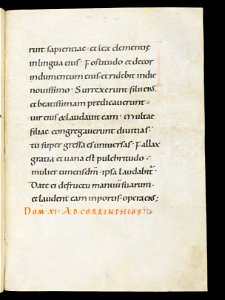 runt sapientiae et lex clementię
in lingua eius Fortitudo et decor
indumentum eius et ridebit in die
novissimo Surrexerunt filii eius
et beatissimam predicaverunt
vir eius et laudavit eam Multae
filiae congregaverunt divitias
tu supergressa es universas Fallax
gratia et vana est pulchritudo
mulier timens dm ipsa laudabit
Date ei de fructu manuum suarum
et laudent eam in portis opera eius;
DOM XI AD CORRINTHIOS